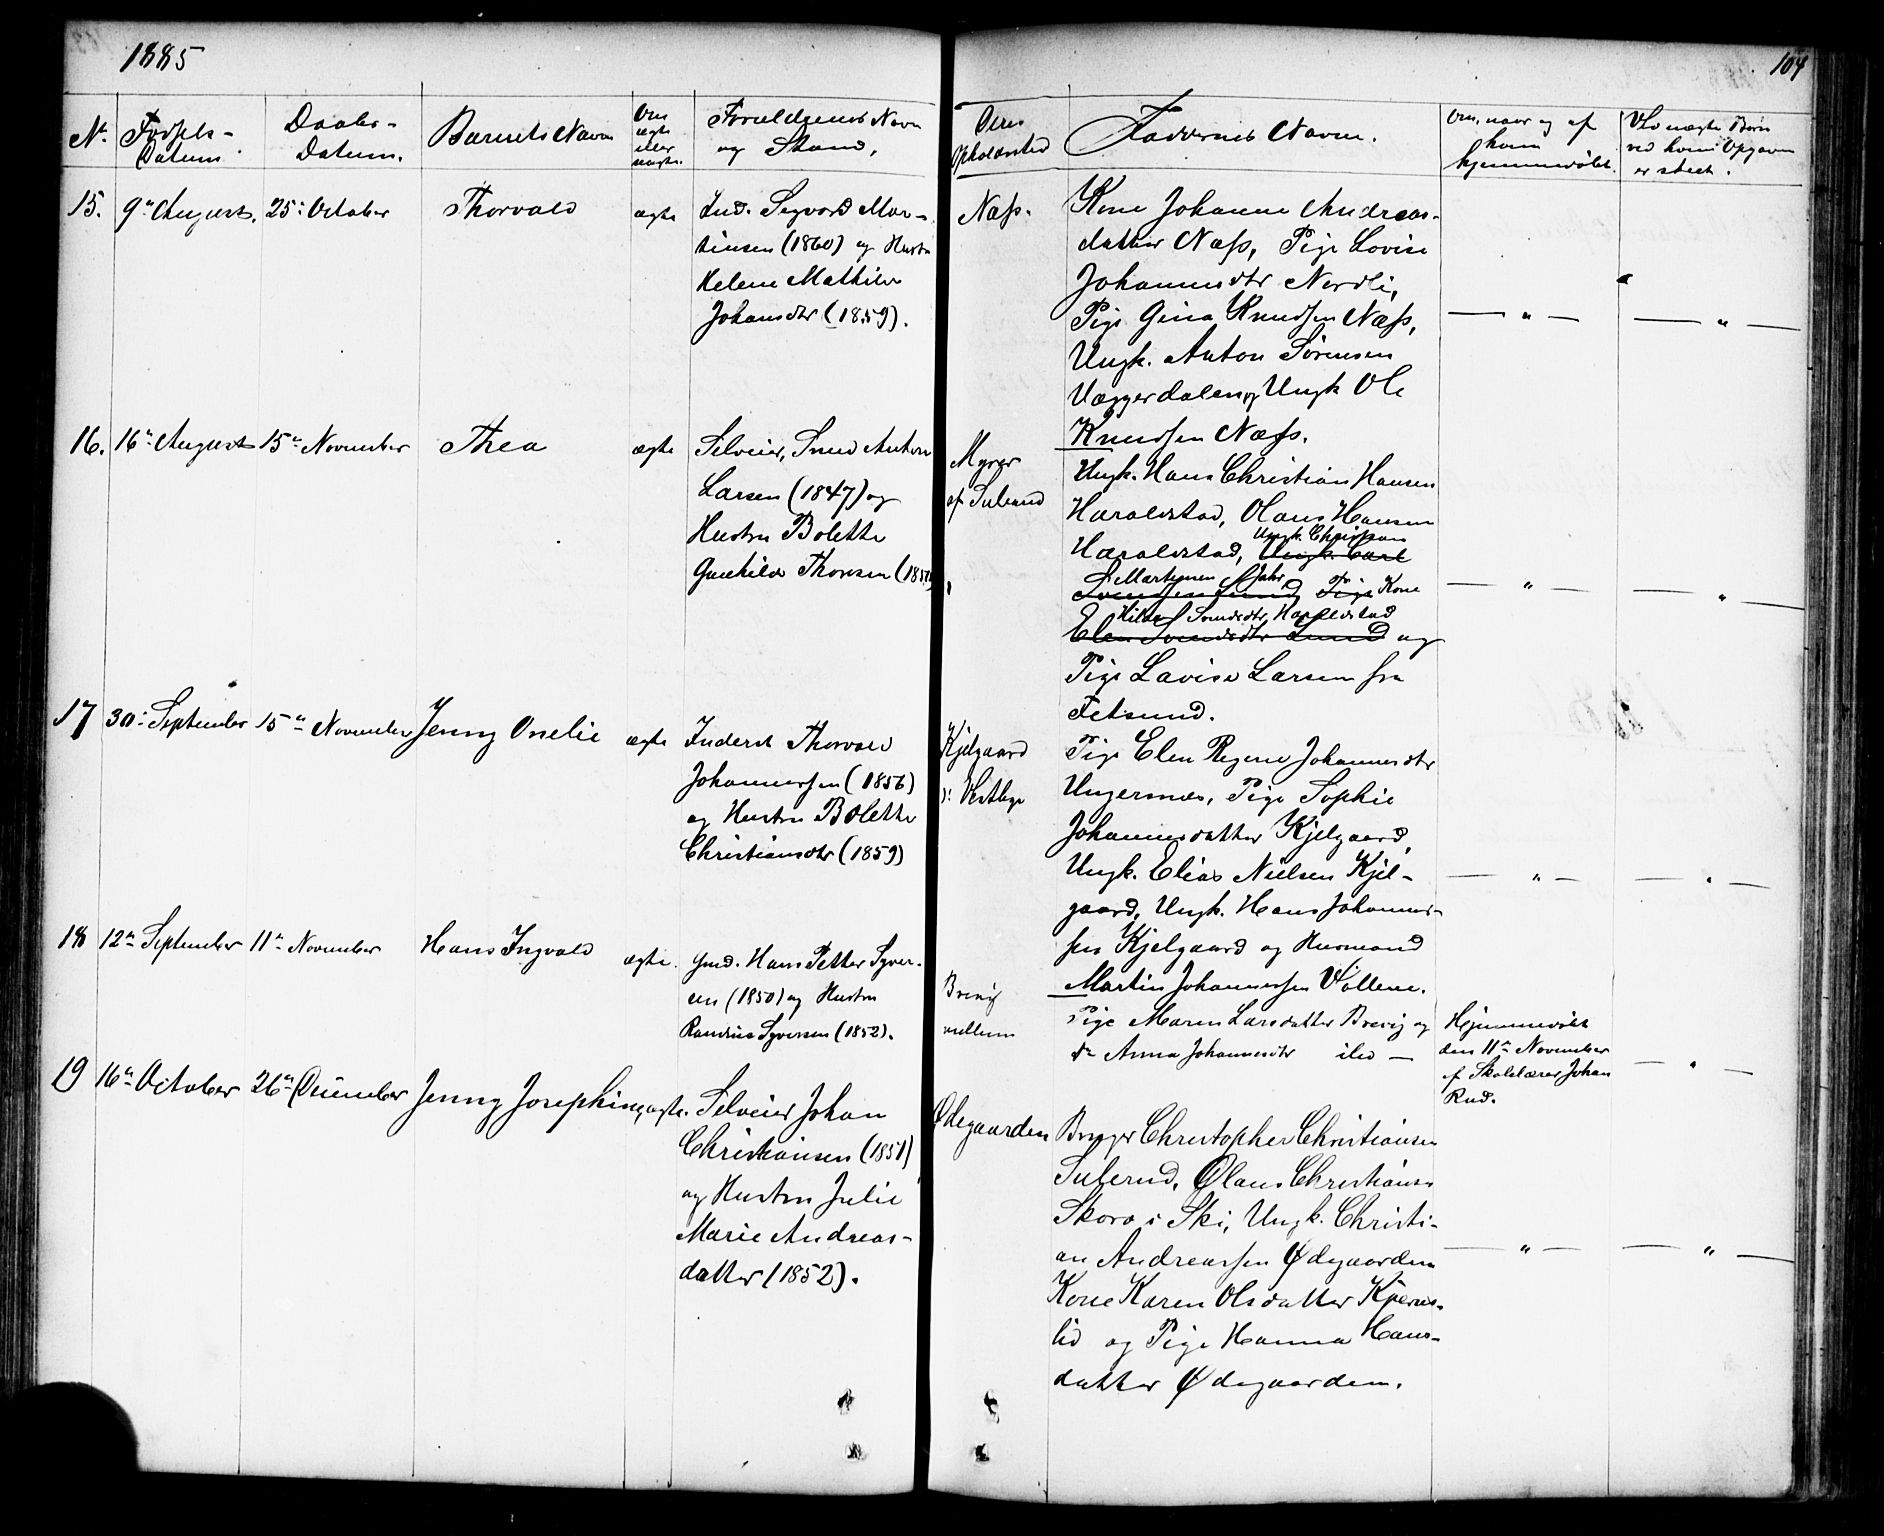 1885
104
No. Fødsels-Datum. Daabs-Datum. Barnets Navn Om ægte eller uægte. Forældrenes Navn og Stand.
Deres Opholdssted Faddernes Navne. Om, naar og af hvem hjemmedøbt. Ved uægte Børn ved hvem Opgaven er skeet.
15. 9de August. 25de October Thorvald ægte Ind. Sigvard Mar-
tinsen (1860) og Hustru
Helene Mathilde
Johansdtr (1859).
Næss.
Kone Johanne Andreas-
datter Næss, Pige Lovise
Johannesdtr Nordli,
Pige Gina Knudsen Næss,
Ungk. Anton Sörensen
Væggerdalen og Ungk Ole
Knudsen Næss.
— " — — " —
16. 16de August 15de November Thea ægte Selveier, Smed Anton
Larsen (1847) og
Hustru Bolette
Gunhilde Thoresen
Myrer
af Sulerud
Ungk. Hans Christian Hansen
Haraldstad, Olaus Hansen
Haraldstad, Ungk. Carl
Ungk. Christian
Svendsen Lund, Pige Kone
Martinsen
Elen Svendsdtr Lund og
Hilda Svendsdtr, Haraldstad
Pige Lavise Larsen fra
Fetsund.
— " — — " —
17 30te September 15de November Jenny Onelie ægte Inderst Thorvald
Johannessen (1856)
og Hustru Bolette
Christiansdtr (1859)
Kjelgaard
i Vestby
Pige Elen Regine Johannesdtr
Ungersnæs, Pige Sophie
Johannesdatter Kjelgaard,
Ungk. Elias Nielsen Kjel-
gaard, Ungk. Hans Johannes-
sen Kjelgaard og Husmand
Martin Johannessen Vollene.
— " — — " —
18 12te September 11te November Hans Ingvald ægte. Gmd. Hans Petter Syver-
sen (1850) og Hustru
Randine Syversen (1852).
Brevig
mellem
Pige Maren Larsdatter Brevig og
do Anna Johannesdtr ibid —
Hjemmedøbt
den 11te November
af Skolelærer Johan
Rud.
— " —
19 16de October 26de December Jenny Josephine, ægte. Selveier Johan
Christiansen (1851)
og Hustru Julie
Marie Andreas-
datter (1852).
Ødegaarden
Brygger Christopher Christiansen
Sulerud, Olaus Christiansen
Skoro i Ski, Ungk. Christi-
an Andreassen Ødegaarden
Kone Karen Olsdatter Kjærnes-
lid og Pige Hanna Hans-
datter Ødegaarden.
— " — — " —